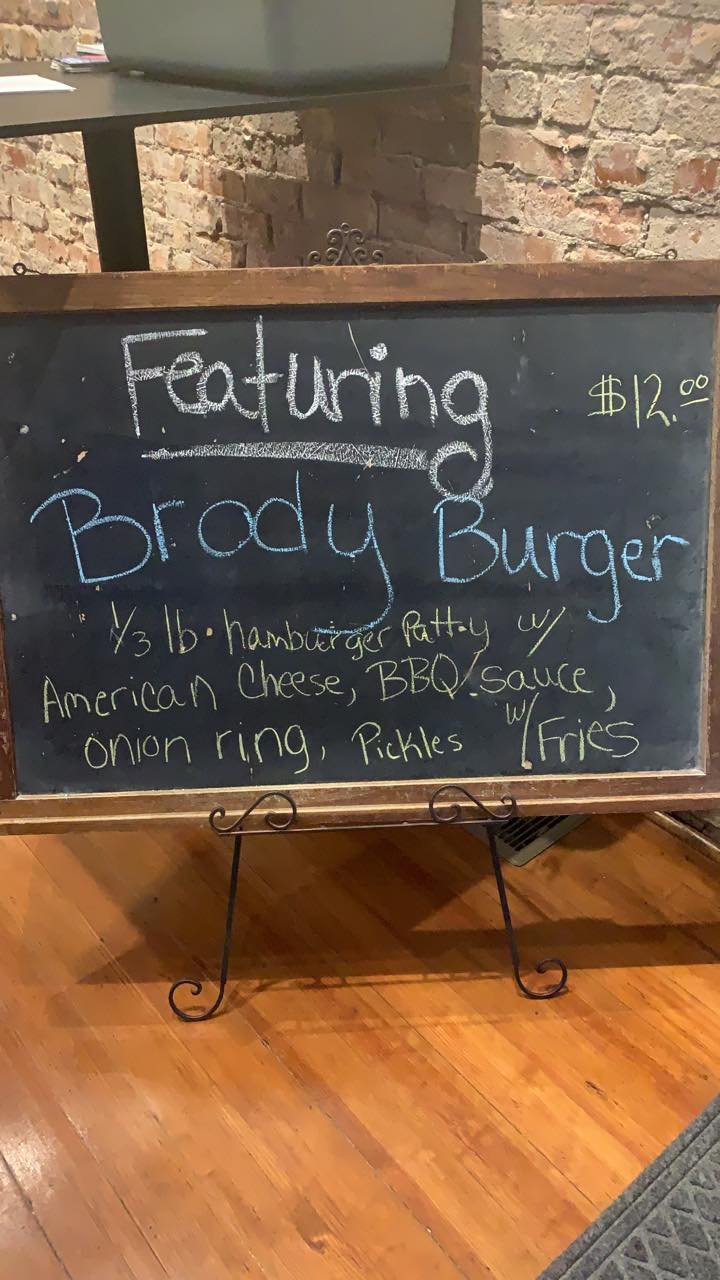 Featuring
$12.00
Brody Burger
1/3 lb. hamburger Patty w/
American Cheese, BBQ sauce,
onion ring, Pickles w/ Fries